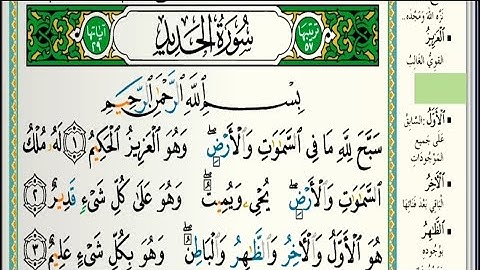 ترتيبها ٥٧
سُورَةُ الحَدِيدِ
آياتها ٢٩
بِسْمِ ٱللَّهِ ٱلرَّحْمَٰنِ ٱلرَّحِيمِ
سَبَّحَ لِلَّهِ مَا فِى ٱلسَّمَٰوَٰتِ وَٱلْأَرْضِ ۖ وَهُوَ ٱلْعَزِيزُ ٱلْحَكِيمُ ١ لَهُۥ مُلْكُ
ٱلسَّمَٰوَٰتِ وَٱلْأَرْضِ ۖ يُحْىِۦ وَيُمِيتُ ۖ وَهُوَ عَلَىٰ كُلِّ شَىْءٍ قَدِيرٌ ٢
هُوَ ٱلْأَوَّلُ وَٱلْءَاخِرُ وَٱلظَّٰهِرُ وَٱلْبَاطِنُ ۖ وَهُوَ بِكُلِّ شَىْءٍ عَلِيمٌ ٣
نزّه الله ومجّده..
ٱلْعَزِيزُ
القويّ الغالب
ٱلْأَوَّلُ: السابق
على جميع
الموجودات
ٱلْءَاخِرُ
الباقي بعد فنائها
ٱلظَّٰهِرُ
بوجوده